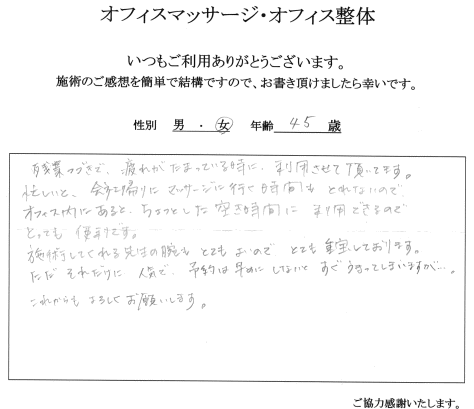 オフィスマッサージ・オフィス整体
いつもご利用ありがとうございます。
施術のご感想を簡単で結構ですので、お書き頂けましたら幸いです。
性別 男 ・ 女 年齢 45 歳
残業つづきで、疲れがたまっている時に、利用させて頂いてます。
忙しいと、会社帰りにマッサージに行く時間もとれないので
オフィス内にあると、ちょっとした空き時間に利用できるので
とっても便利です。
施術してくれる先生の腕もとてもよいので とても重宝しております。
ただ それだけに 人気で、予約は早めにしないと すぐうまってしまいますが…。
これからも よろしく お願いします。
ご協力感謝いたします。